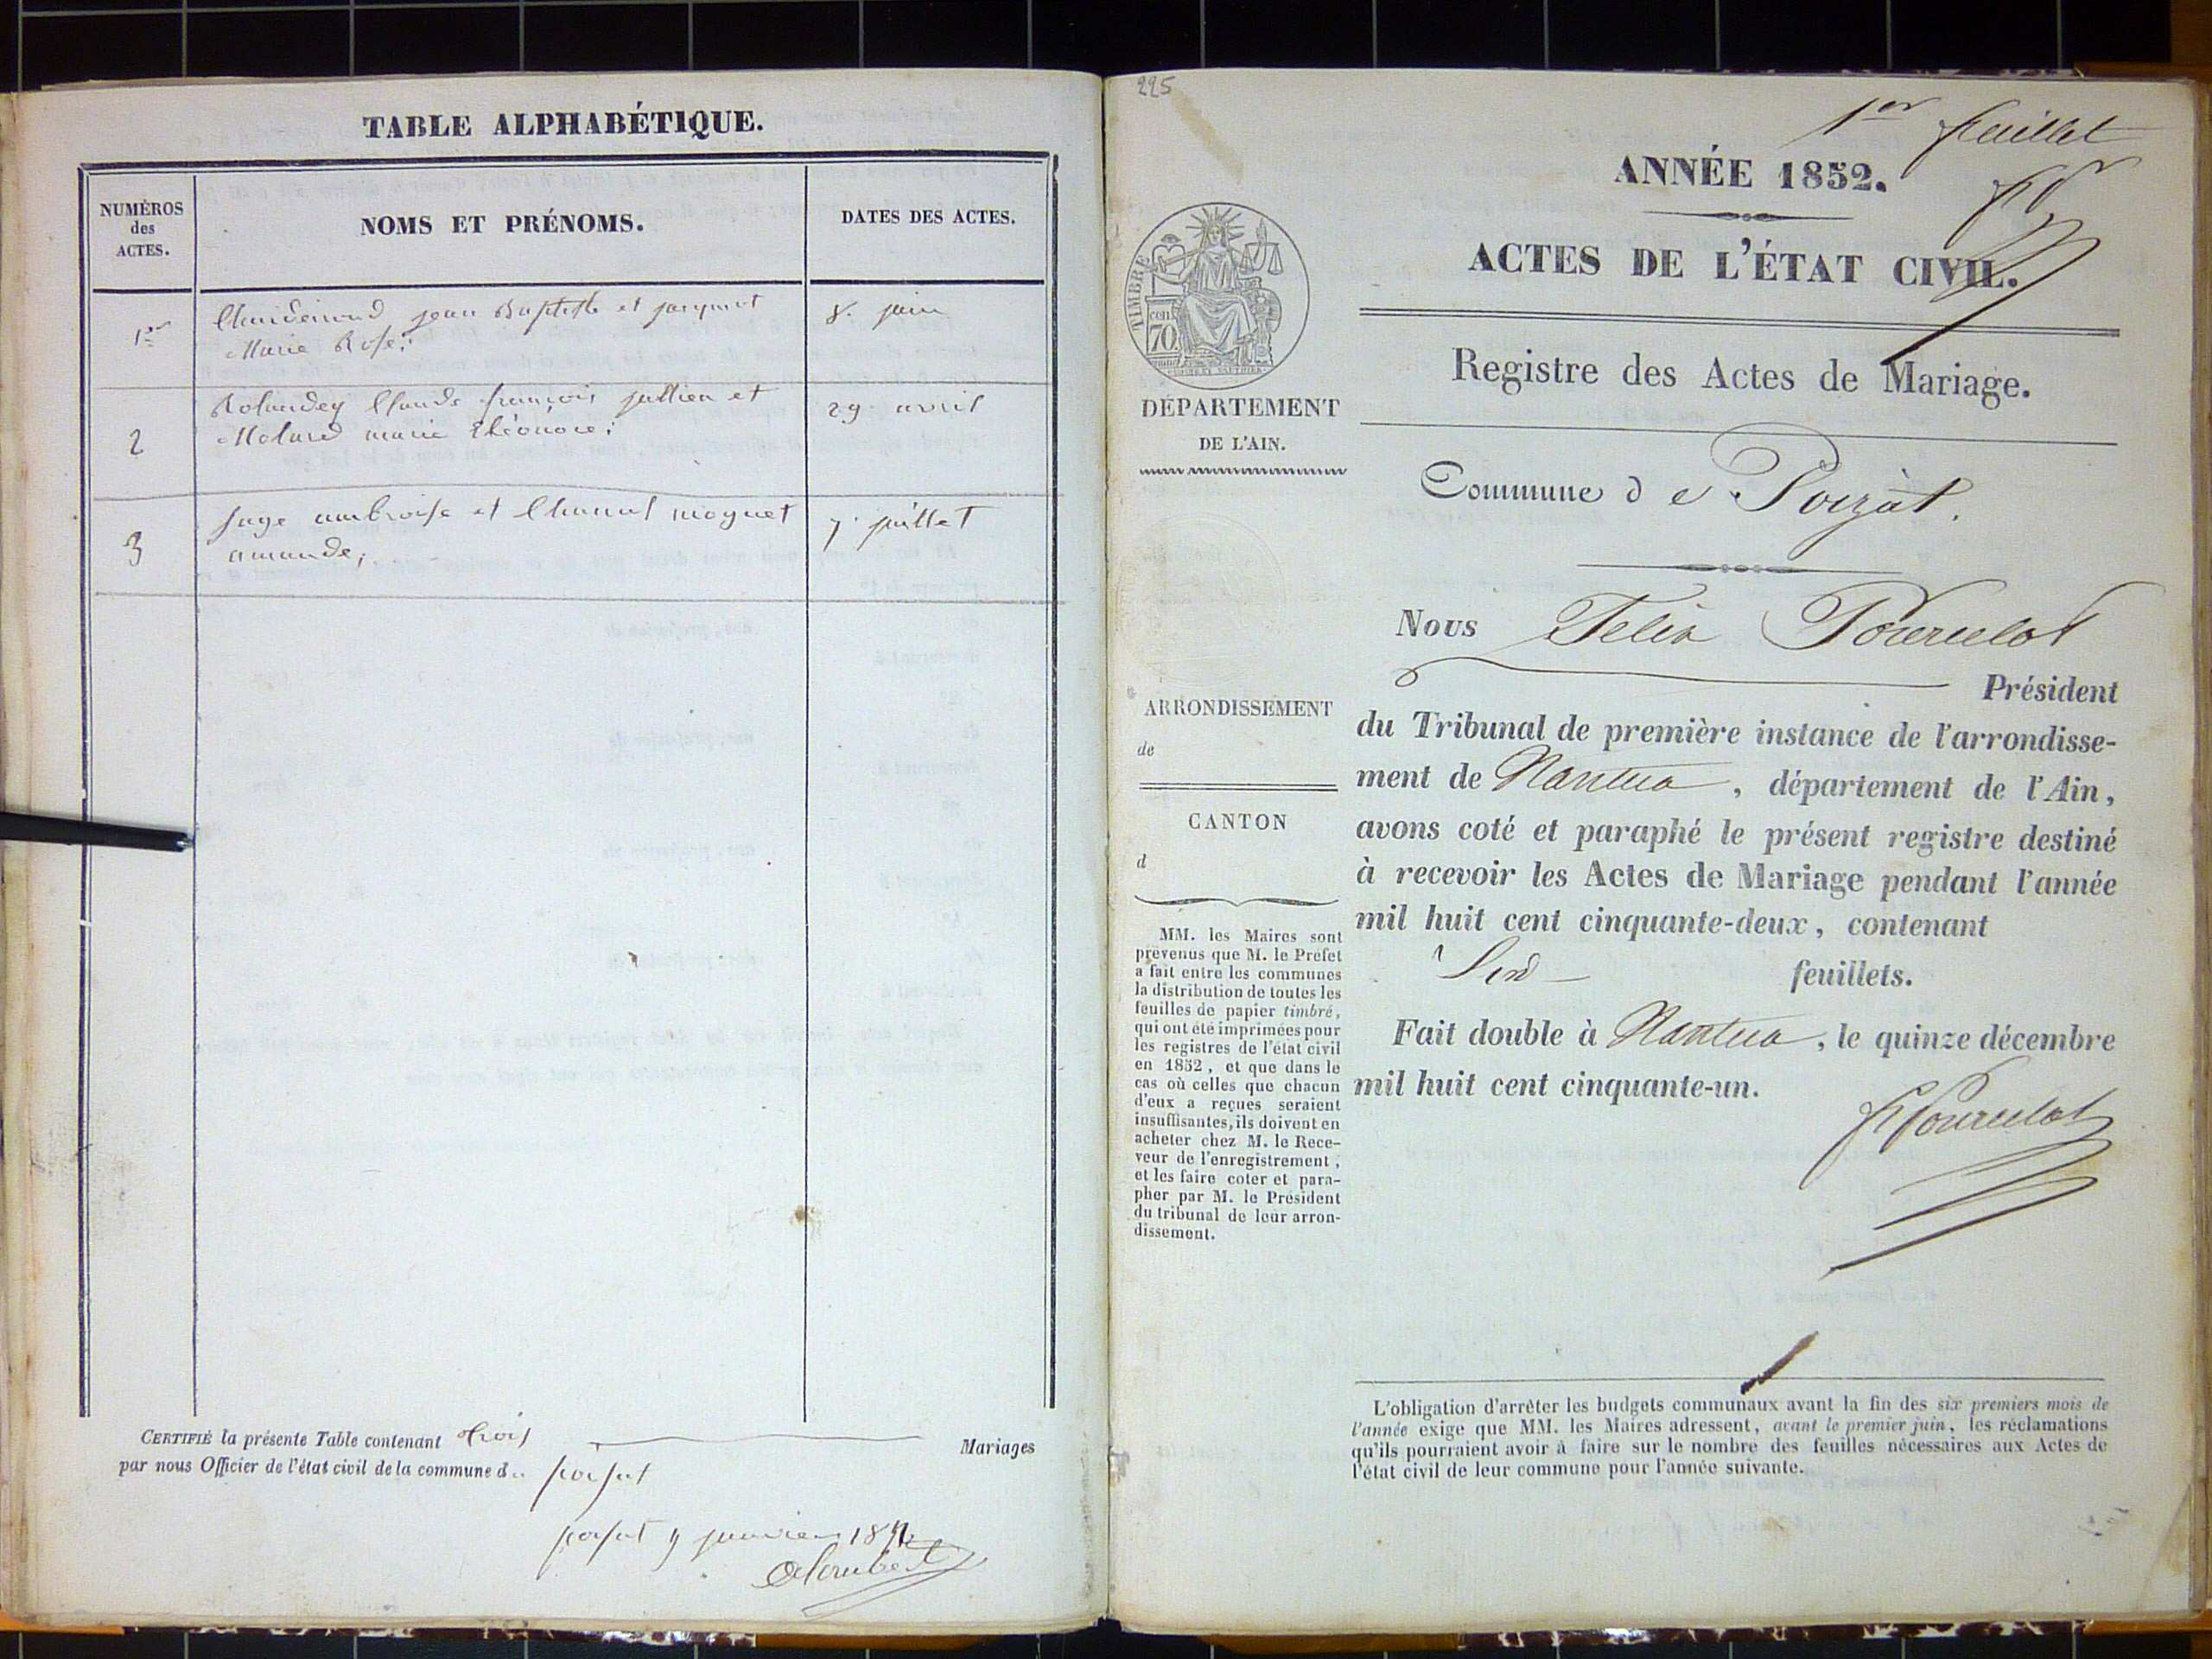 TABLE ALPHABÉTIQUE.
NUMÉROS
des
ACTES.
NOMS ET PRÉNOMS.
DATES DES ACTES.
1er
jean Baptiste et
Marie Rose;
8. juin
2
Claude françois jullien et
Molard marie Eléonore;
29 avril
3
Juge ambroise et moynet
amande;
7. juillet
CERTIFIÉ la présente Table contenant trois Mariages
par nous Officier de l'état civil de la commune d
janvier
225
1er feuillet
ANNÉE 1852.
ACTES DE L'ÉTAT CIVIL.
Registre des Actes de Mariage.
TIMBRE
cen.
70
DÉPARTEMENT
DE L'AIN.
Commune de Poizat.
Nous Felix Pourcelot
Président
du Tribunal de première instance de l'arrondisse-
ment de Nantua, département de l'Ain,
avons coté et paraphé le présent registre destiné
à recevoir les Actes de Mariage pendant l'année
mil huit cent cinquante-deux, contenant
feuillets.
Fait double à Nantua, le quinze décembre
mil huit cent cinquante-un.
Pourcelot
ARRONDISSEMENT
de
CANTON
d
MM. les Maires sont
prévenus que M. le Préfet
a fait entre les communes
la distribution de toutes les
feuilles de papier timbré,
qui ont été imprimées pour
les registres de l'état civil
en 1852, et que dans le
cas où celles que chacun
d'eux a reçues seraient
insuffisantes, ils doivent en
acheter chez M. le Rece-
veur de l'enregistrement;
et les faire coter et para-
pher par M. le Président
du tribunal de leur arron-
dissement.
L'obligation d'arrêter les budgets communaux avant la fin des six premiers mois de
l'année exige que MM. les Maires adressent, avant le premier juin, les réclamations
qu'ils pourraient avoir à faire sur le nombre des feuilles nécessaires aux Actes de
l'état civil de leur commune pour l'année suivante.